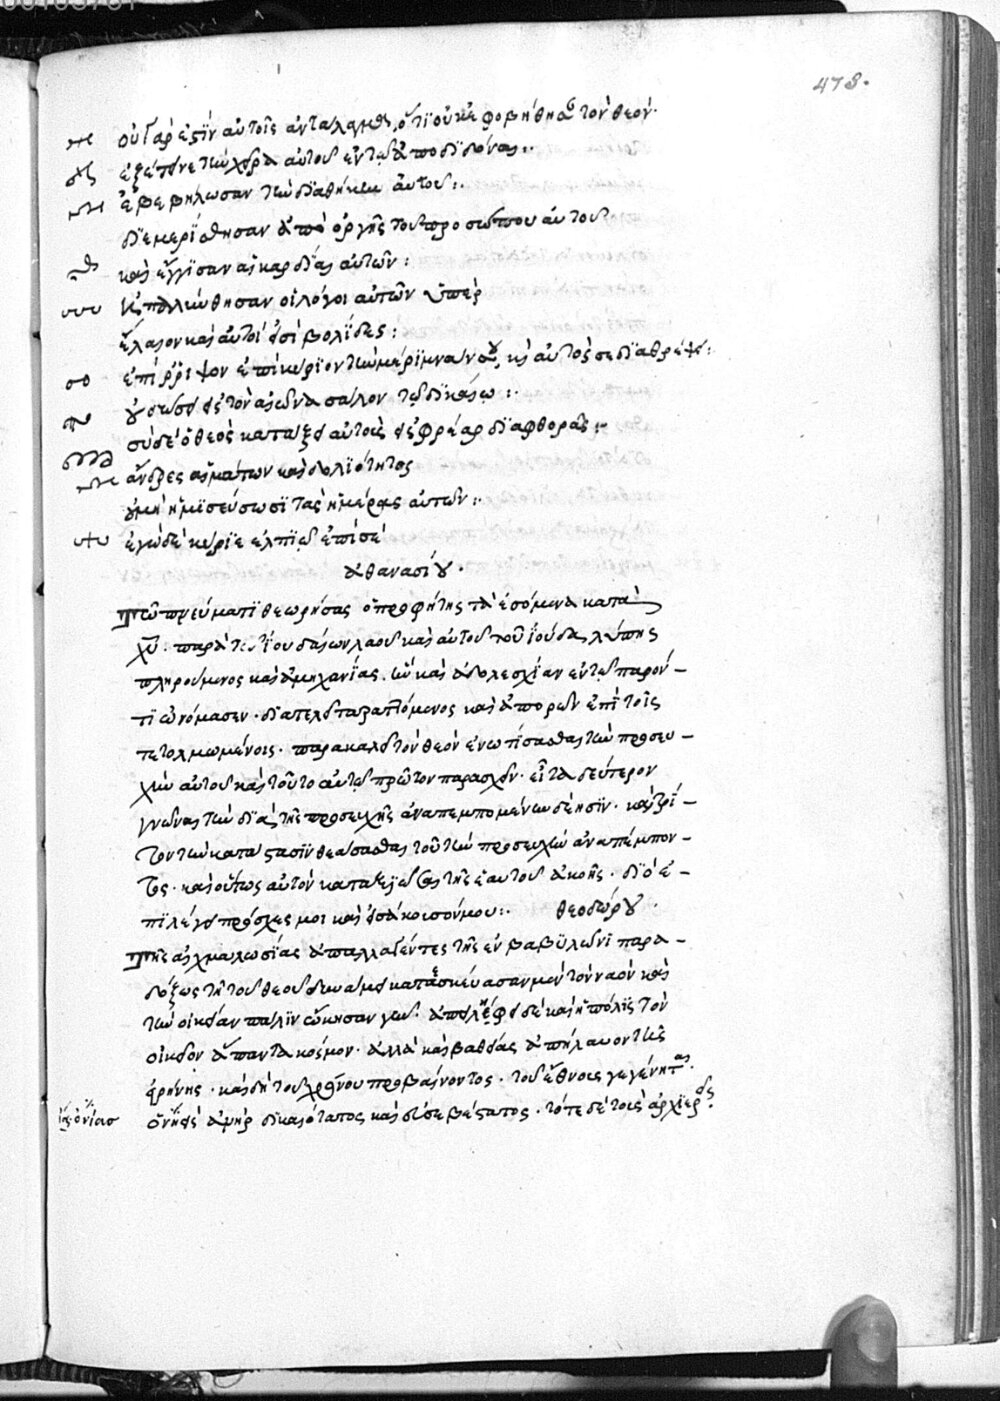 473.
οὐ γάρ ἐστιν αὐτοῖς ἀντάλλαγμα, ὅτι οὐκ ἐφοβήθησαν τὸν θεόν·
ἐξέτεινε τὴν χεῖρα αὐτοῦ ἐν τῷ ἀποδιδόναι:·
ἐβεβήλωσαν τὴν διαθήκην αὐτοῦ:·
διεμερίσθησαν ἀπὸ ὀργῆς τοῦ προσώπου αὐτοῦ
καὶ ἤγγισαν αἱ καρδίαι αὐτῶν:
ἡπαλύνθησαν οἱ λόγοι αὐτῶν ὑπὲρ
ἔλαιον καὶ αὐτοί εἰσι βολίδες:
ἐπίρριψον ἐπὶ κύριον τὴν μέριμνάν σου, κὶ αὐτός σε διαθρέψει:
οὐ δώσει εἰς τὸν αἰῶνα σάλον τῷ δικαίῳ:·
σὺ δὲ ὁ θεὸς κατάξεις αὐτοὺς εἰς φρέαρ διαφθορᾶς:·
ἄνδρες αἱμάτων καὶ δολιότητος
οὐ μὴ ἡμισεύσωσι τὰς ἡμέρας αὐτῶν:·
ἐγὼ δὲ κύριε ἐλπιῶ ἐπὶ σέ
ἀθανασίου·
τῷ πνεύματι θεωρήσας ὁ προφήτης τὰ ἐσόμενα κατὰ
χυ· παρὰ τοῦ ἰουδαίων λαοῦ καὶ αὐτοῦ τοῦ ἰούδα, λύπης
πληρούμενος καὶ ἀμηχανίας, ἣν καὶ ἀδολεσχίαν ἐν τῷ παρόν–
τι ὠνόμασεν· διατελεῖ ταραττόμενος καὶ ἀπορῶν ἐπὶ τοῖς
τετολμωμένοις· παρακαλεῖ τὸν θεὸν ἐνωτίσασθαι τὴν προσευ–
χὴν αὐτοῦ καὶ τοῦτο αὐτῷ πρῶτον παρασχεῖν· εἶτα δεύτερον
γνῶναι τὴν διὰ τῆς προσευχῆς ἀναπεμπομένην δέησιν· καὶ τρί–
τον τὴν κατάστασιν θεάσασθαι τοῦ τὴν προσευχὴν ἀναπέμπον–
τος· καὶ οὕτως αὐτὸν καταξιῶσαι τῆς ἑαυτοῦ ἀκοῆς· διὸ ἐ–
πιλέγει πρόσχες μοι καὶ εἰσάκουσόν μου:· θεοδώρου·
τῆς αἰχμαλωσίας ἀπαλλαγέντες τῆς ἐν βαβυλῶνι παρα–
δόξως τῇ τοῦ θεοῦ δυνάμει κατεσκεύασαν μὲν τὸν ναὸν καὶ
τὴν οἰκείαν πάλιν ᾤκησαν γῆν· ἀπείληφε δὲ καὶ ἡ πόλις τὸν
οἰκεῖον ἅπαντα κόσμον· ἀλλὰ καὶ βαθείας ἀπήλαυον τῆς
εἰρήνης· καὶ δὴ τοῦ χρόνου προβαίνοντος· τοῦ ἔθνους γεγένηται·
ὀνίας ἀνὴρ δικαιότατος καὶ εὐσεβέστατος· τότε δὲ τοὺς ἀρχιερεῖς·